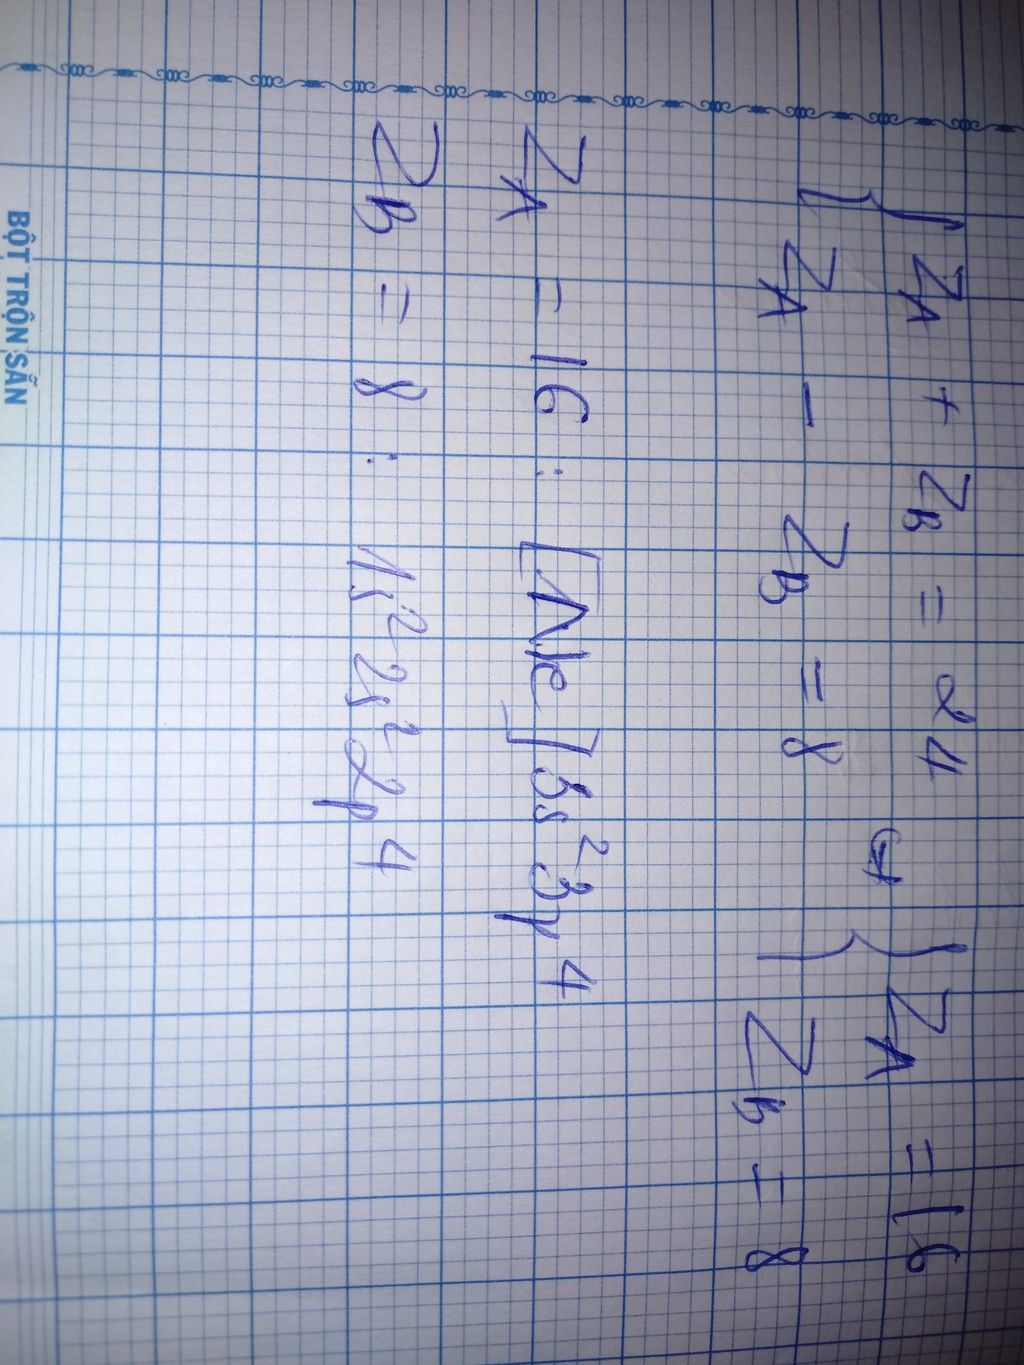 { Z_A + Z_B = 24
Z_A - Z_B = 8
⇔ { Z_A = 16
Z_B = 8
Z_A = 16 : [Ne] 3s² 3p⁴
Z_B = 8 : 1s² 2s² 2p⁴
BỘT TRỘN SẴN